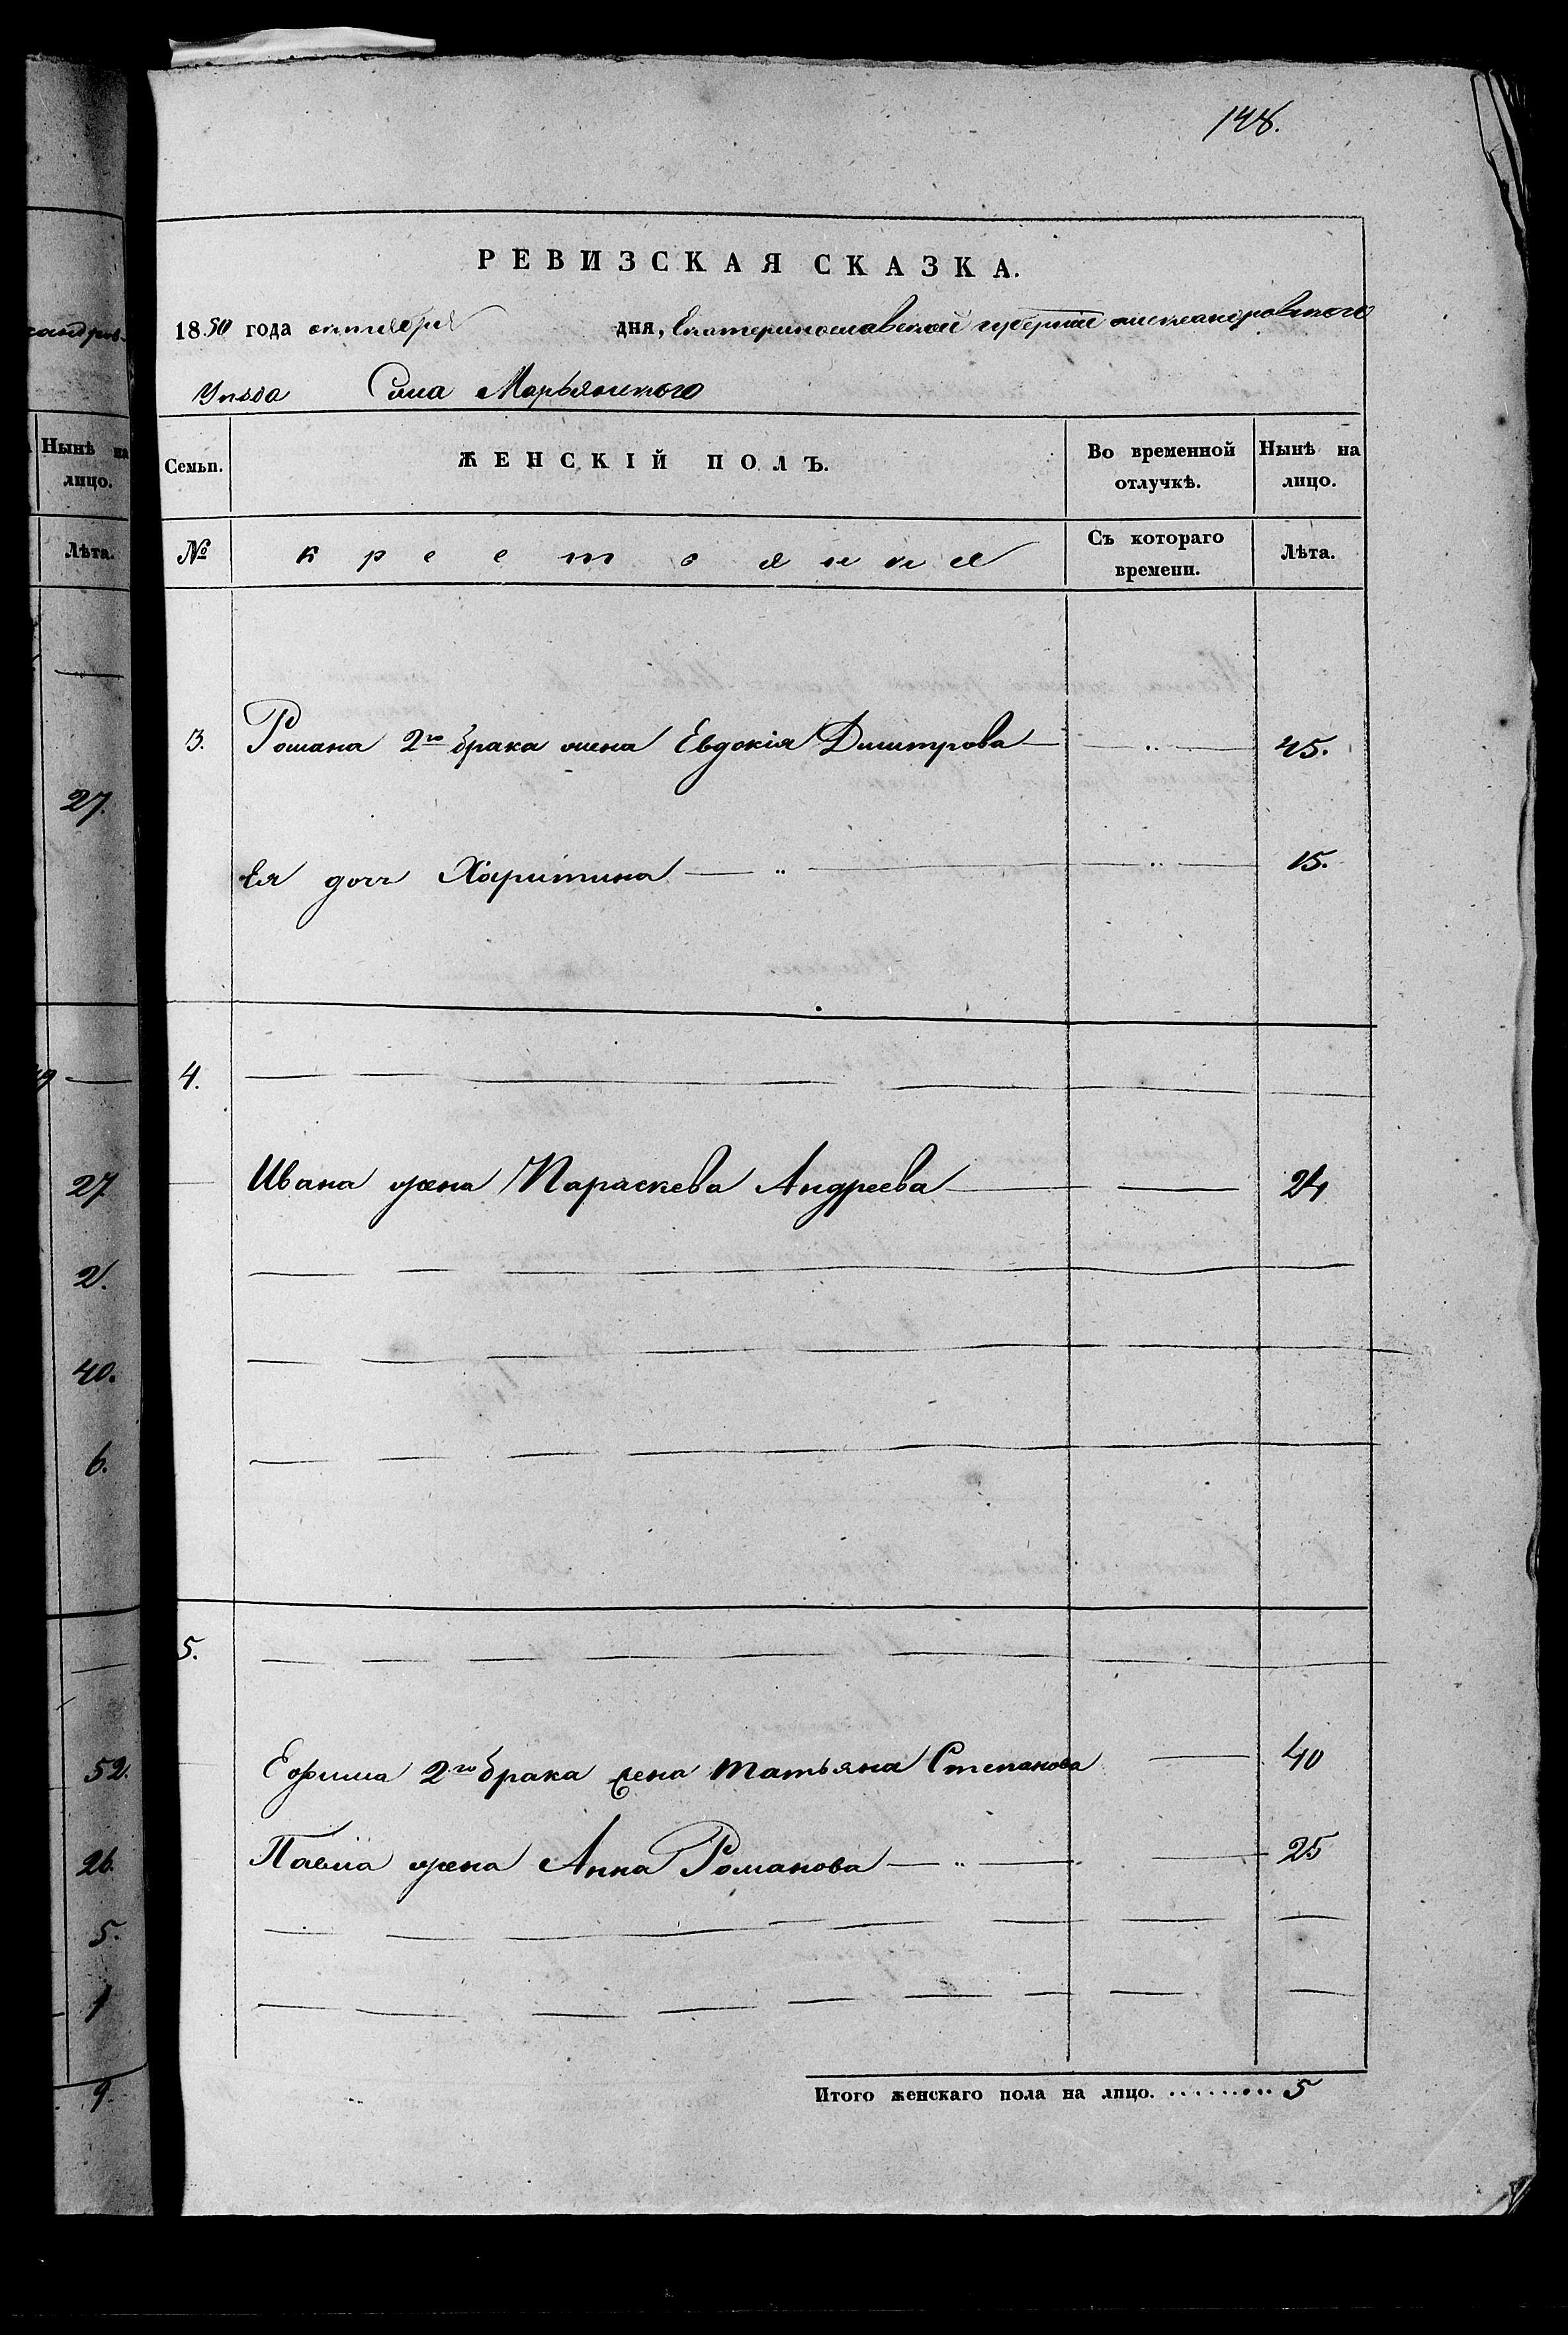 148.
РЕВИЗСКАЯ СКАЗКА.
1850 года октября дня, Екатеринославской губернии александровского
Уезда Села Марьянского
Семьи. ЖЕНСКІЙ ПОЛЪ. Во временной отлучкѣ. Нынѣ на лицо.
№ крестьянки Съ котораго времени. Лѣта.
3. Романа 2го брака жена Евдокія Дмитрова — „ — 45.
Ея доч Харитина — „ — „ — 15.
4.
Ивана жена Параскева Андреева — — 24
5.
Ефима 2го брака жена Татьяна Степанова — 40
Павла жена Анна Романова — „ — — 25
Итого женскаго пола на лицо. ......... 5
сандров-
Нынѣ на
лицо.
Лѣта.
27.
27
2.
40.
6.
52.
26.
5.
1
9.